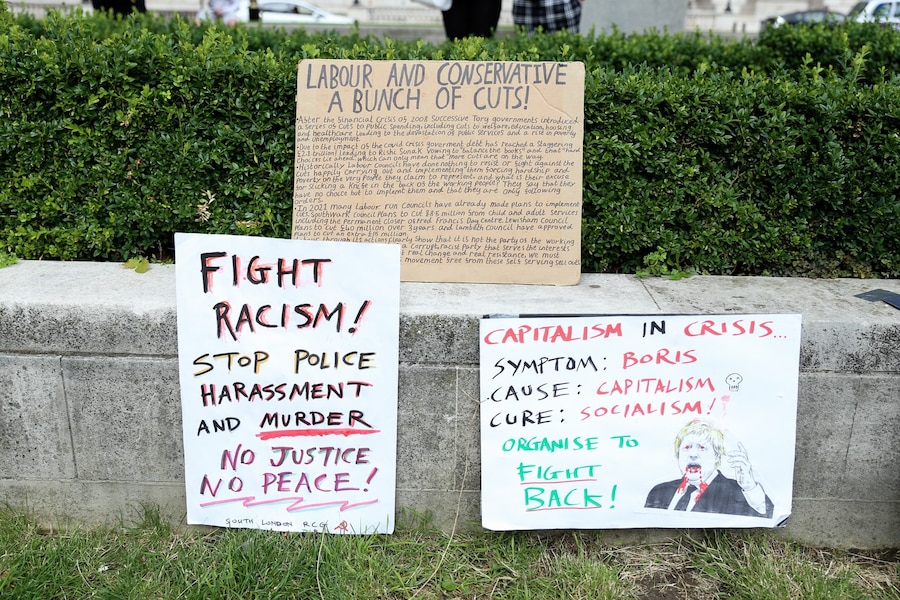 LABOUR AND CONSERVATIVE
A BUNCH OF CUTS!
• After the financial crisis of 2008 Successive Tory governments introduced
a series of cuts to public spending, including cuts to welfare, education, housing
and healthcare leading to the devastation of public services and a rise in poverty
and unemployment.
• Due to the impact of the covid crisis government debt has reached a staggering
£2.1 trillion leading to Rishi Sunak vowing to "balance the books" and that "hard
choices lie ahead" which can only mean that more cuts are on the way.
• Historically Labour Councils have done nothing to resist or fight against the
cuts happily carrying out and implementing them forcing hardship and
poverty on the very people they claim to represent and what is their excuse
for sticking a knife in the back of the working people? They say that they
have no choice but to implement them and that they are only following
orders.
• In 2021 many Labour run Councils have already made plans to implement
cuts Southwark Council plans to cut
million from child and adult services
including the permanent closer of Fred Francis Day Centre, Lewisham Council
plans to cut £40 million over 3 years and Lambeth Council have approved
plans to cut an extra £15 million.
through its actions clearly show that it is not the party of the working
a corrupt, racist party that serves the interests
real change and real resistance, we must
movement free from these self serving sell outs
FIGHT
RACISM!
STOP POLICE
HARASSMENT
AND MURDER
NO JUSTICE
NO PEACE!
SOUTH LONDON R.C.G
CAPITALISM IN CRISIS...
SYMPTOM: BORIS
CAUSE: CAPITALISM
CURE: SOCIALISM!
ORGANISE TO
FIGHT
BACK!